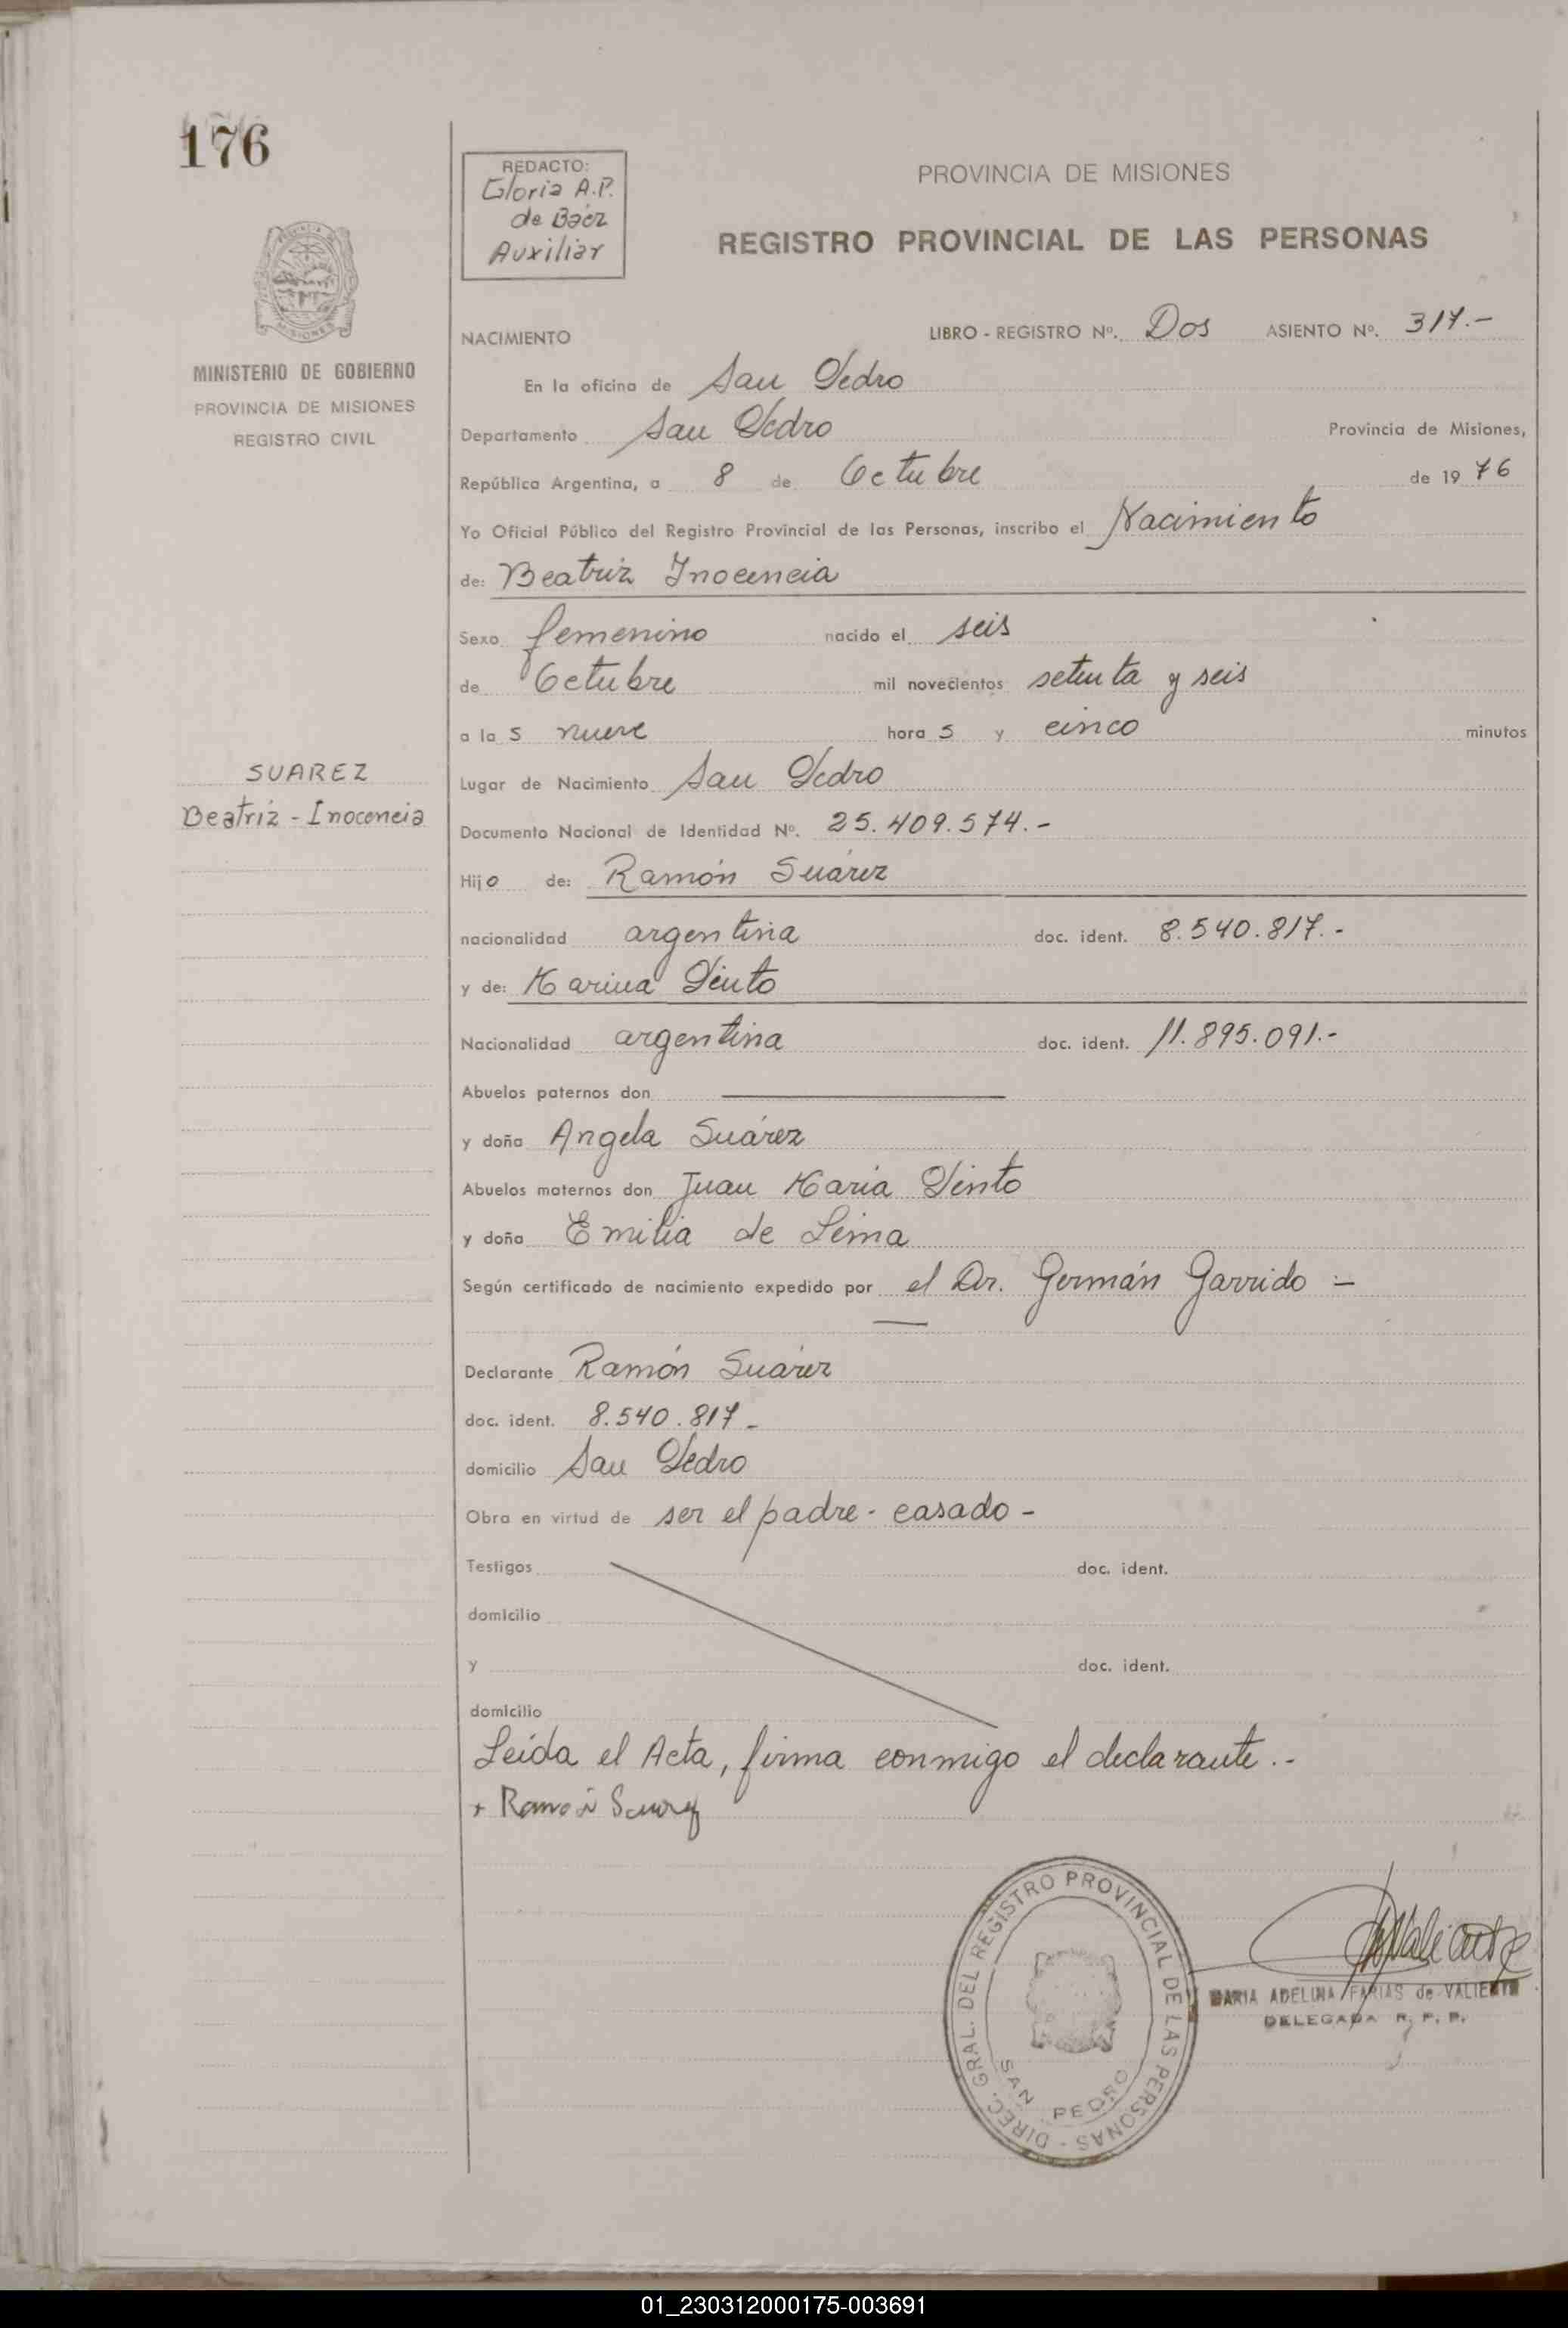 176
REDACTO:
Gloria A.P.
de Báez
Auxiliar
PROVINCIA DE MISIONES
REGISTRO PROVINCIAL DE LAS PERSONAS
MISIONES
MINISTERIO DE GOBIERNO
PROVINCIA DE MISIONES
REGISTRO CIVIL
NACIMIENTO LIBRO - REGISTRO Nº. Dos ASIENTO Nº. 317.-
En la oficina de San Pedro
Departamento San Pedro Provincia de Misiones,
República Argentina, a 8 de Octubre de 1976
Yo Oficial Público del Registro Provincial de las Personas, inscribo el Nacimiento
de: Beatriz Inocencia
Sexo femenino nacido el seis
de Octubre mil novecientos setenta y seis
a las nueve horas y cinco minutos
SUAREZ
Beatriz - Inocencia
Lugar de Nacimiento San Pedro
Documento Nacional de Identidad Nº. 25.409.574.-
Hijo de: Ramón Suárez
nacionalidad argentina doc. ident. 8.540.817.-
y de: Marina Pinto
Nacionalidad argentina doc. ident. 11.895.091.-
Abuelos paternos don
y doña Angela Suárez
Abuelos maternos don Juan Maria Pinto
y doña Emilia de Lima
Según certificado de nacimiento expedido por el Dr. Germán Garrido -
Declarante Ramón Suárez
doc. ident. 8.540.817-
domicilio San Pedro
Obra en virtud de ser el padre - casado -
Testigos doc. ident.
domicilio
y doc. ident.
domicilio
Leida el Acta, firma conmigo el declarante.-
+ Ramón Suarez
DIREC. GRAL. DEL REGISTRO PROVINCIAL DE LAS PERSONAS -
SAN PEDRO
MARIA ADELINA FARIAS de VALIENTE
DELEGADA R. P. P.
01_230312000175-003691